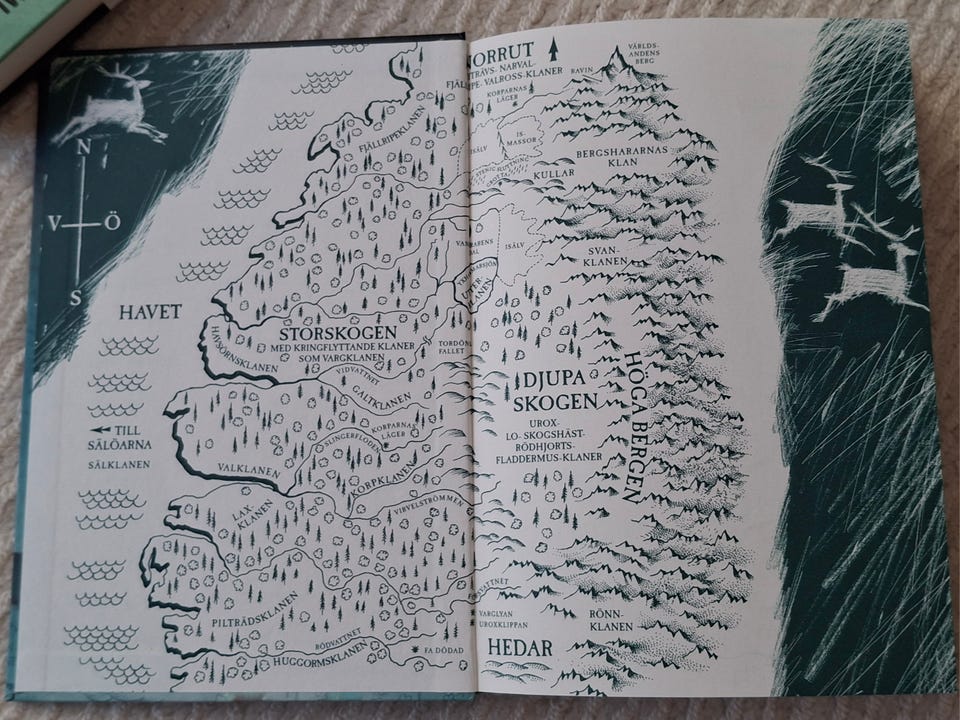 N
V
Ö
S
HAVET
TILL
SÄLÖARNA
SÄLKLANEN
FJÄLLRIPEKLANEN
HAVSÖRNSKLANEN
STORSKOGEN
MED KRINGFLYTTANDE KLANER
SOM VARGKLANEN
VIDVATTNET
GALTKLANEN
SLINGERFLODEN
KORPARNAS
LÄGER
VALKLANEN
KORPKLANEN
VIRVELSTRÖMMEN
LAX
KLANEN
PILTRÄDSKLANEN
RÖDVATTNET
HUGGORMSKLANEN
FA DÖDAD
TORDÖN
FALLET
NORRUT
NARVAL-
VALROSS-KLANER
KORPARNAS
LÄGER
RAVIN
VÄRLDS-
ANDENS
BERG
IS-
MASSOR
BERGSHARARNAS
KLAN
KULLAR
ISÄLV
SVAN-
KLANEN
DJUPA
SKOGEN
UROX-
LO- SKOGSHÄST-
RÖDHJORTS-
FLADDERMUS-KLANER
HÖGA BERGEN
VARGLYAN
UROXKLIPPAN
RÖNN-
KLANEN
HEDAR